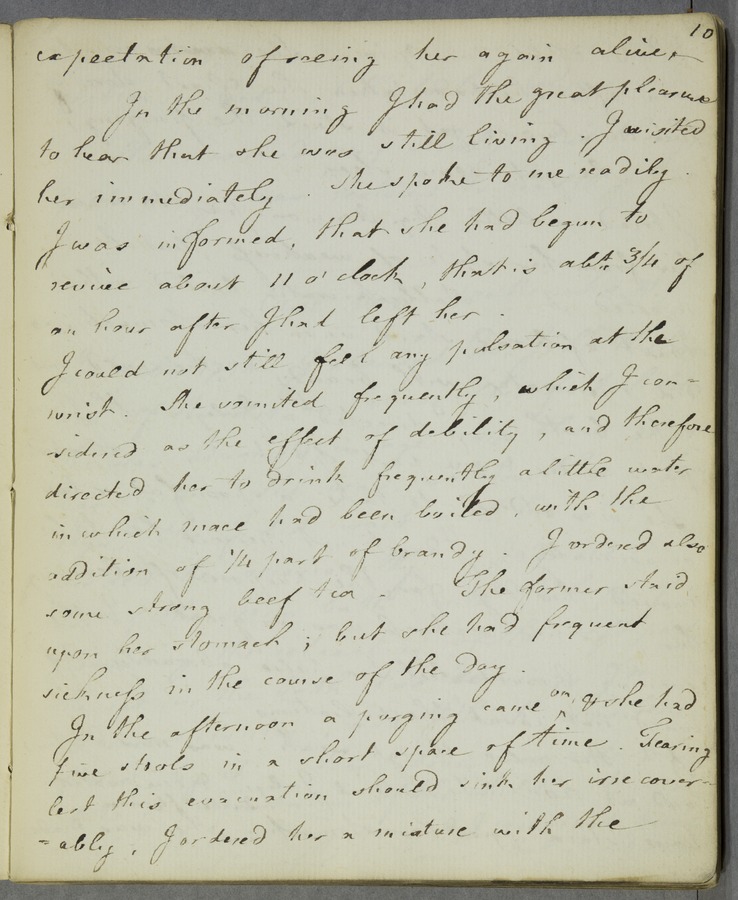 10
expectation of seeing her again alive.
In the morning I had the great pleasure
to hear that she was still living. I visited
her immediately. She spoke to me readily.
I was informed, that she had begun to
revive about 11 o'clock, that is abt. 3/4 of
an hour after I had left her.
I could not still feel any pulsation at the
wrist. She vomited frequently, which I con=
-sidered as the effect of debility, and therefore
directed her to drink frequently a little water
in which mace had been boiled, with the
addition of 1/4 part of brandy. I ordered also
some strong beef tea - The former staid
upon her stomach; but she had frequent
sickness in the course of the day.
In the afternoon a purging came on, & she had
five stools in a short space of time. Fearing
lest this evacuation should sink her irrecover=
=ably, I ordered her a mixture with the